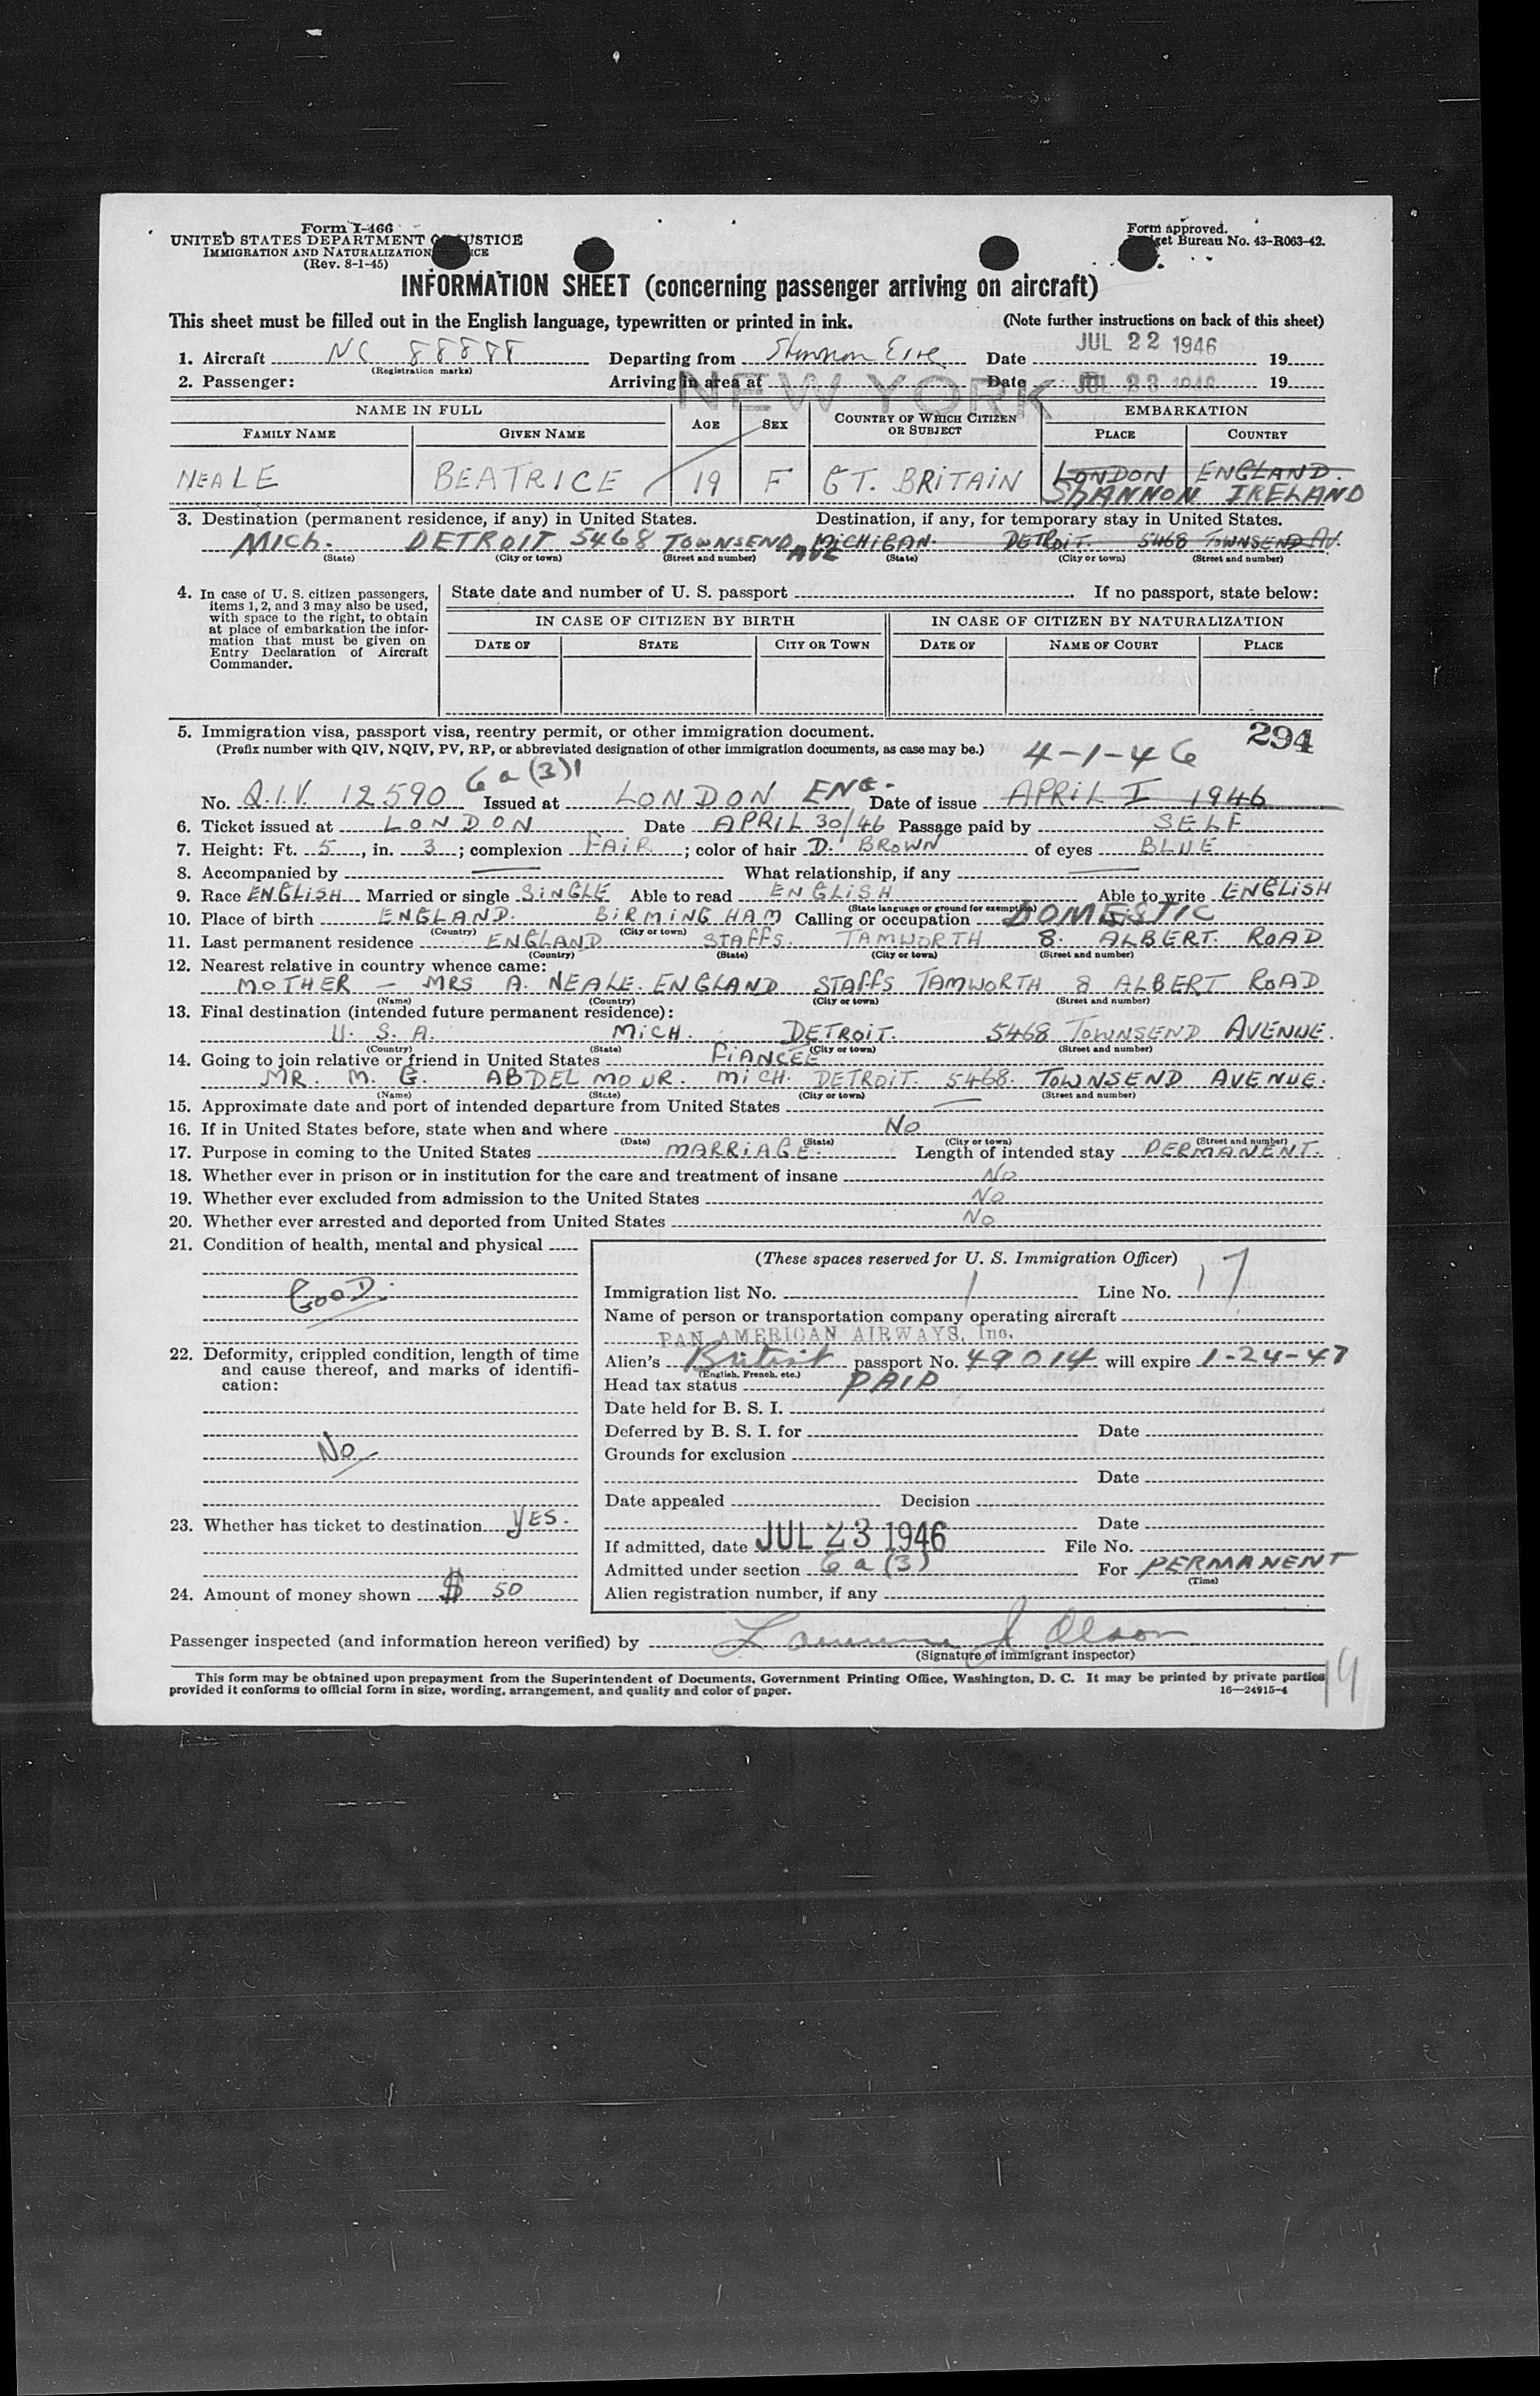 Form I-466
UNITED STATES DEPARTMENT OF JUSTICE
IMMIGRATION AND NATURALIZATION SERVICE
(Rev. 8-1-45)
Form approved.
Budget Bureau No. 43-R063-42.
INFORMATION SHEET (concerning passenger arriving on aircraft)
This sheet must be filled out in the English language, typewritten or printed in ink. (Note further instructions on back of this sheet)
1. Aircraft NC 88888 Departing from Shannon Eire Date JUL 22 1946 19
(Registration marks)
2. Passenger: Arriving in area at NEW YORK Date JUL 23 1946 19
NAME IN FULL AGE SEX COUNTRY OF WHICH CITIZEN OR SUBJECT EMBARKATION
FAMILY NAME GIVEN NAME PLACE COUNTRY
NEALE BEATRICE 19 F GT. BRITAIN LONDON ENGLAND.
SHANNON IRELAND
3. Destination (permanent residence, if any) in United States. Destination, if any, for temporary stay in United States.
MICH. DETROIT 5468 TOWNSEND AVE MICHIGAN. DETROIT. 5468 TOWNSEND AV.
(State) (City or town) (Street and number) (State) (City or town) (Street and number)
4. In case of U. S. citizen passengers, items 1, 2, and 3 may also be used, with space to the right, to obtain at place of embarkation the information that must be given on Entry Declaration of Aircraft Commander.
State date and number of U. S. passport If no passport, state below:
IN CASE OF CITIZEN BY BIRTH IN CASE OF CITIZEN BY NATURALIZATION
DATE OF STATE CITY OR TOWN DATE OF NAME OF COURT PLACE
5. Immigration visa, passport visa, reentry permit, or other immigration document. 294
(Prefix number with QIV, NQIV, PV, RP, or abbreviated designation of other immigration documents, as case may be.) 4-1-46
6a(3)1
No. Q.I.V. 12590 Issued at LONDON ENG. Date of issue APRIL I 1946
6. Ticket issued at LONDON Date APRIL 30/46 Passage paid by SELF
7. Height: Ft. 5, in. 3; complexion FAIR; color of hair D. BROWN of eyes BLUE
8. Accompanied by — What relationship, if any —
9. Race ENGLISH Married or single SINGLE Able to read ENGLISH Able to write ENGLISH
(State language or ground for exemption)
10. Place of birth ENGLAND. BIRMINGHAM Calling or occupation DOMESTIC
(Country) (City or town)
11. Last permanent residence ENGLAND STAFFS. TAMWORTH 8. ALBERT. ROAD
(Country) (State) (City or town) (Street and number)
12. Nearest relative in country whence came:
MOTHER — MRS A. NEALE. ENGLAND STAFFS TAMWORTH 8 ALBERT ROAD
(Name) (Country) (City or town) (Street and number)
13. Final destination (intended future permanent residence):
U. S. A. MICH. DETROIT. 5468 TOWNSEND AVENUE.
(Country) (State) (City or town) (Street and number)
14. Going to join relative or friend in United States FIANCEE
MR. M. G. ABDELMOUR. MICH. DETROIT. 5468. TOWNSEND AVENUE.
(Name) (State) (City or town) (Street and number)
15. Approximate date and port of intended departure from United States —
16. If in United States before, state when and where NO
(Date) (State) (City or town) (Street and number)
17. Purpose in coming to the United States MARRIAGE. Length of intended stay PERMANENT.
18. Whether ever in prison or in institution for the care and treatment of insane NO
19. Whether ever excluded from admission to the United States NO
20. Whether ever arrested and deported from United States NO
21. Condition of health, mental and physical
GOOD.
22. Deformity, crippled condition, length of time and cause thereof, and marks of identification:
NO
23. Whether has ticket to destination YES.
24. Amount of money shown $ 50
(These spaces reserved for U. S. Immigration Officer)
Immigration list No. 1 Line No. 17
Name of person or transportation company operating aircraft
PAN AMERICAN AIRWAYS, Inc.
Alien's British passport No. 49014 will expire 1-24-47
(English, French, etc.)
Head tax status PAID
Date held for B. S. I.
Deferred by B. S. I. for Date
Grounds for exclusion
Date
Date appealed Decision
Date
If admitted, date JUL 23 1946 File No.
Admitted under section 6a(3) For PERMANENT
(Time)
Alien registration number, if any
Passenger inspected (and information hereon verified) by Olson
(Signature of immigrant inspector)
This form may be obtained upon prepayment from the Superintendent of Documents, Government Printing Office, Washington, D. C. It may be printed by private parties
provided it conforms to official form in size, wording, arrangement, and quality and color of paper. 16—24915-4